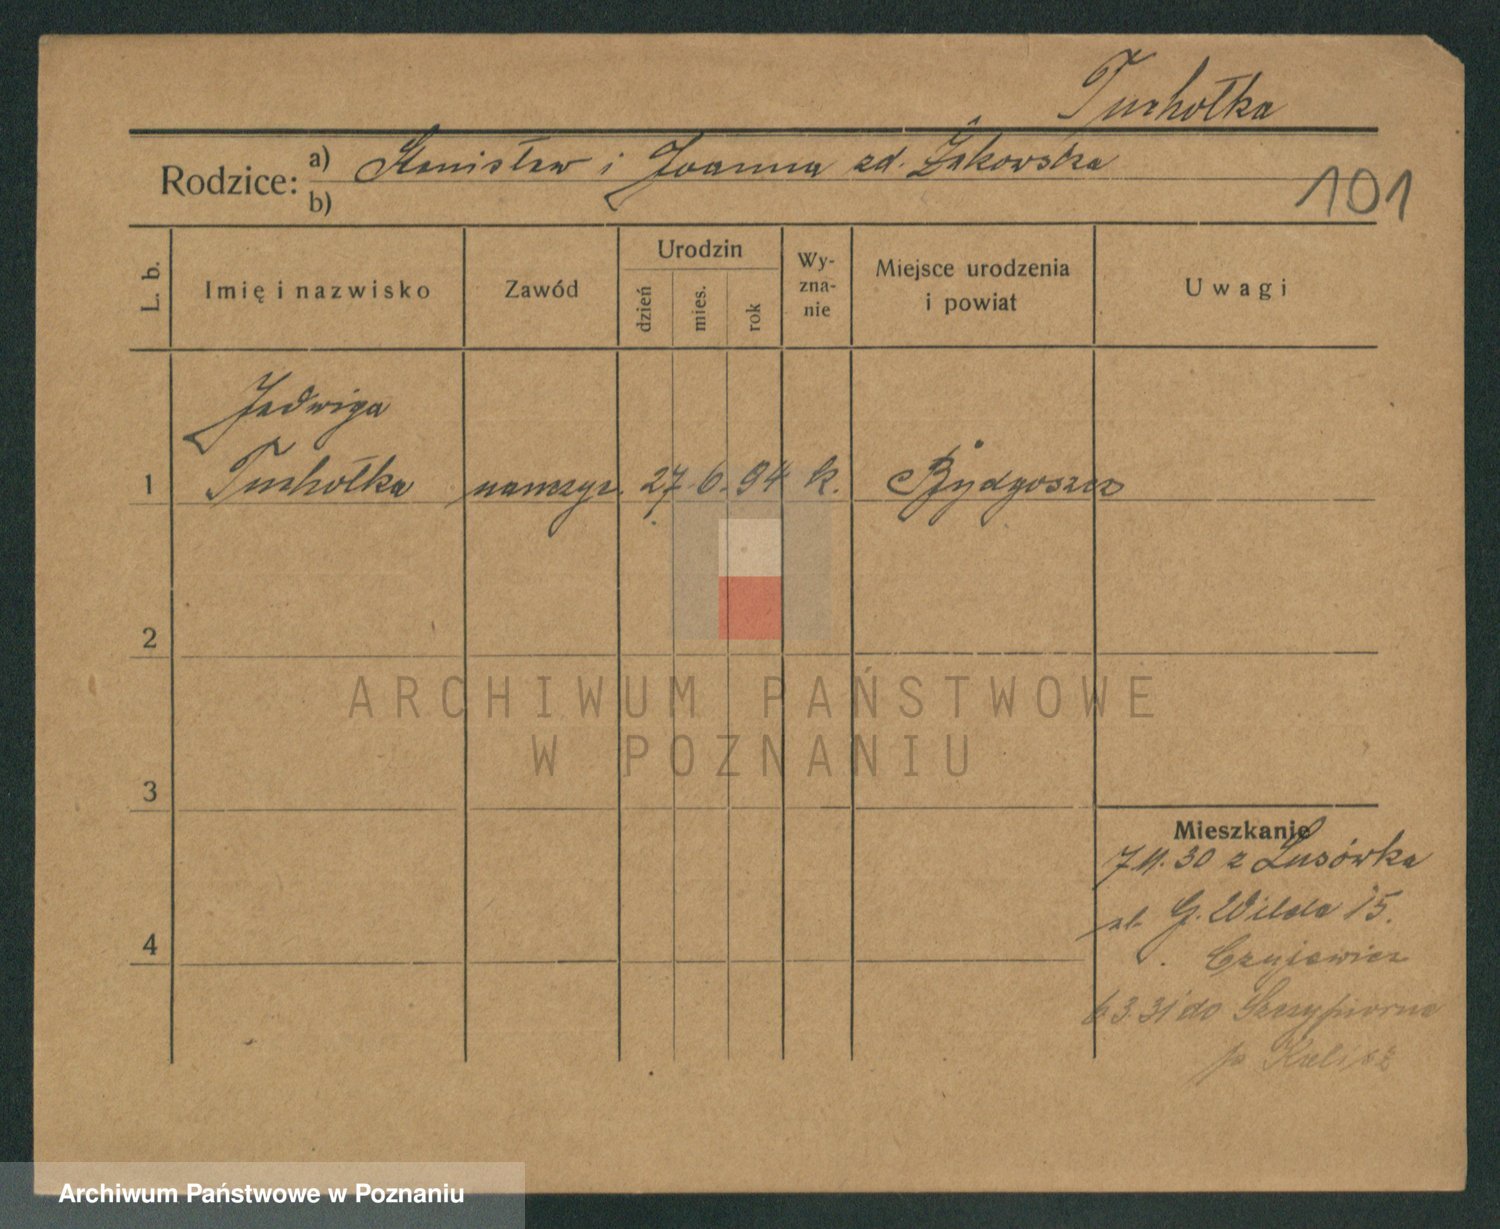 Tuchołka
Rodzice: a) Stanisław i Joanna zd. Żakowska
b)
101
L. b.
Imię i nazwisko
Zawód
Urodzin
dzień
mies.
rok
Wy-
zna-
nie
Miejsce urodzenia
i powiat
Uwagi
Jadwiga
1 Tuchołka nauczyc. 27. 6. 94 k. Bydgoszcz
2
ARCHIWUM PAŃSTWOWE
W POZNANIU
3
Mieszkanie
7.11.30 z Lusówka
ul. G. Wilda 15.
4
6.3.31 do Szczypiorna
p. Kalisz
Archiwum Państwowe w Poznaniu